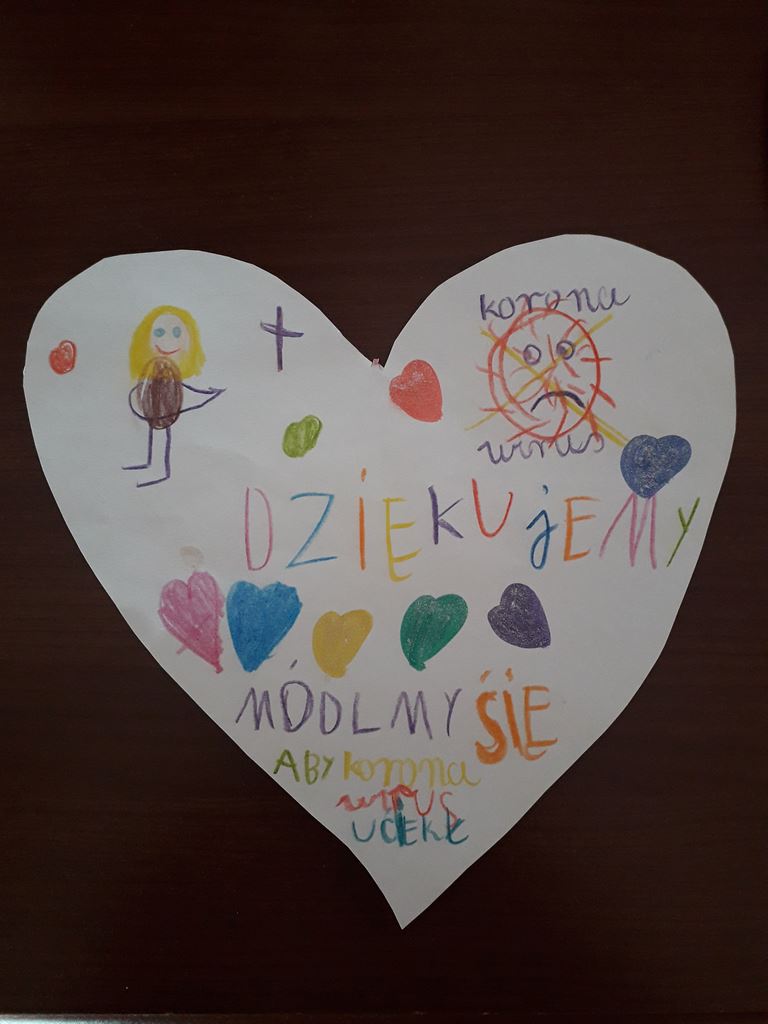 korona
wirus
DZIĘKUjEMY
MÓDLMY ŚIĘ
ABY korona
wirus
UĆIEKŁ